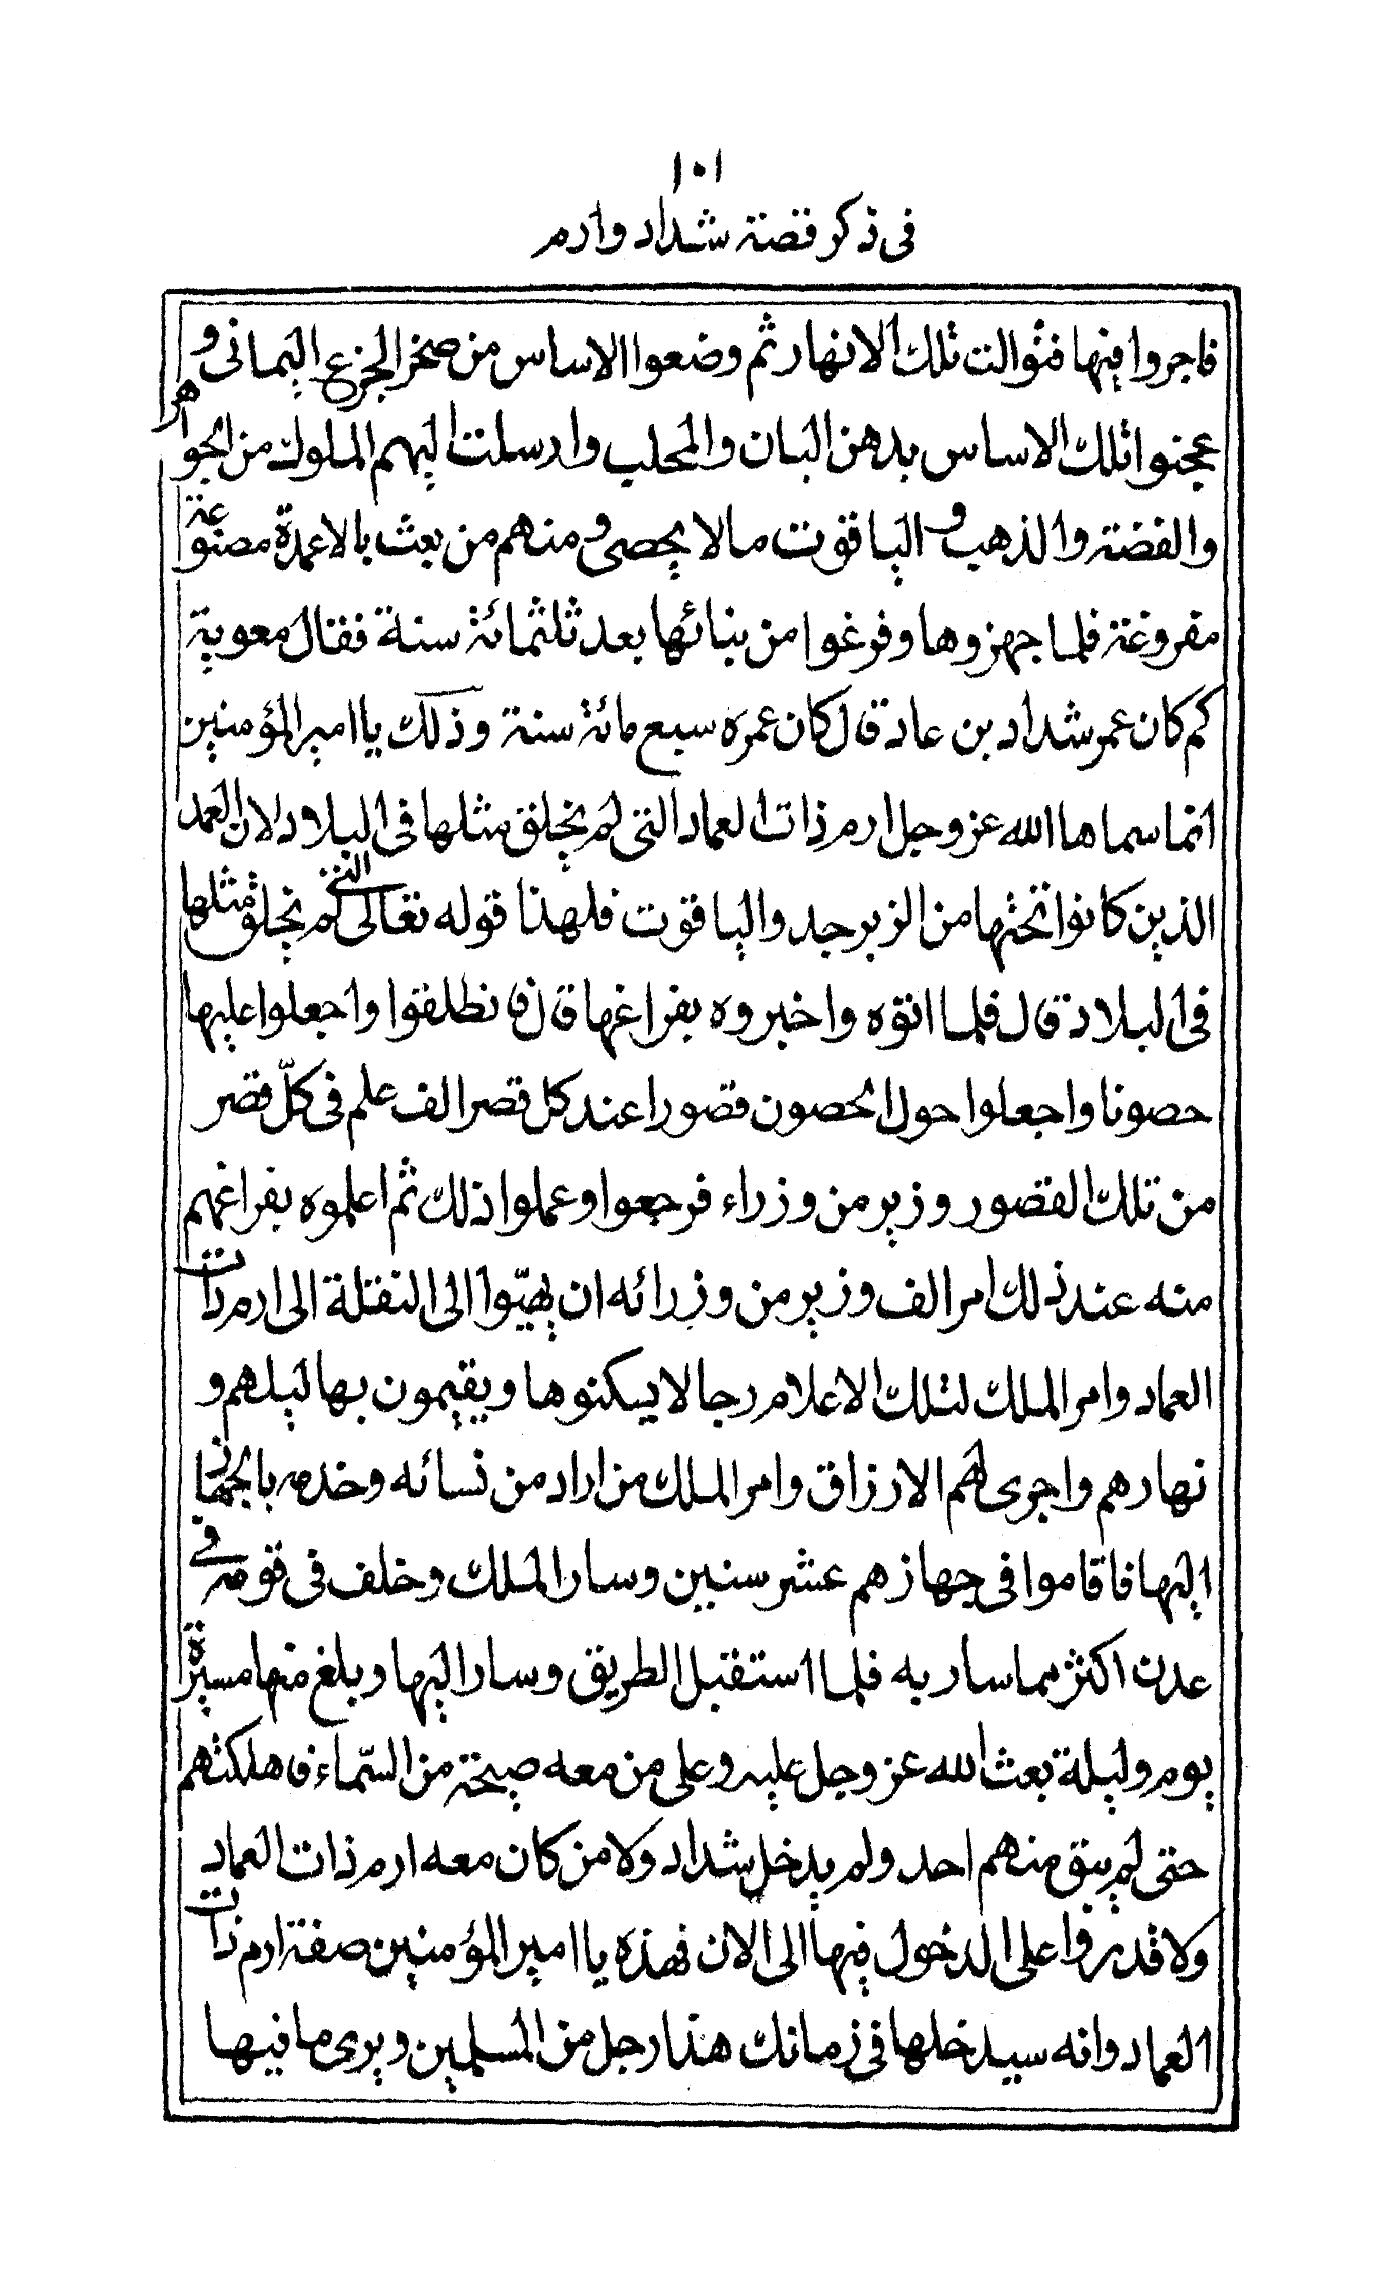 ١٠١
فى ذكر قصة شداد وارم
فاجروا فيها فتوالت تلك الانهار ثم وضعوا الاساس من صخر الجزع اليمانى و
عجنوا تلك الاساس بدهن البان والمحلب وارسلت اليهم الملوك من الجواهر
والفضة والذهب و الياقوت مالا يحصى ومنهم من بعث بالاعمدة مصنوعة
مفروغة فلما جهزوها وفرغوا من بنائها بعد ثلثمائة سنة فقال معوية
كم كان عمر شداد بن عاد قال كان عمره سبع مائة سنة وذلك يا امير المؤمنين
انما سماها الله عز وجل ارم ذات العماد التى لم يخلق مثلها فى البلاد لان العمد
الذين كانوا تحتها من الزبرجد والياقوت فلهذا قوله تعالى التى لم يخلق مثلها
فى البلاد قال فلما اتوه واخبروه بفراغها قال فانطلقوا واجعلوا عليها
حصونا واجعلوا حول الحصون قصورا عند كل قصر الف علم فى كلّ قصر
من تلك القصور وزير من وزراء فرجعوا وعملوا ذلك ثم اعلموه بفراغهم
منه عند ذلك امر الف وزير من وزرائه ان يهيّوا الى النقلة الى ارم ذات
العماد وامر الملك لتلك الاعلام رجالا يسكنوها ويقيمون بها ليلهم و
نهارهم واجرى لهم الارزاق وامر الملك من اراد من نسائه وخدمه بالجهاز
اليها فاقاموا فى جهازهم عشر سنين وسار الملك وخلف فى قومه فى
عدن اكثر مما سار به فلما استقبل الطريق وسار اليها وبلغ منها مسيرة
يوم وليلة بعث الله عز وجل عليه وعلى من معه صيحة من السّماء فاهلكتهم
حتى لم يبق منهم احد ولم يدخل شداد ولا من كان معه ارم ذات العماد
ولا قدروا على الدخول فيها الى الان فهذه يا امير المؤمنين صفة ارم ذات
العماد وانه سيدخلها فى زمانك هذا رجل من المسلمين ويرى ما فيها